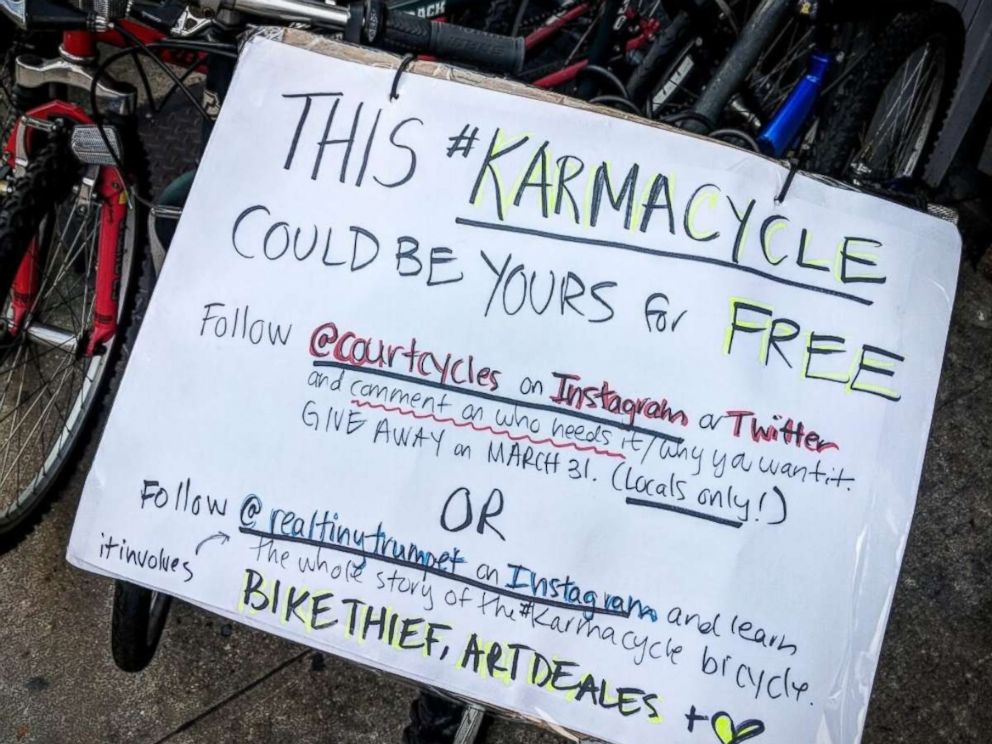 THIS #KARMACYCLE
COULD BE YOURS for FREE
Follow @courtcycles on Instagram or Twitter
and comment on who needs it/why you want it.
GIVE AWAY on MARCH 31. (Locals only!)
OR
Follow @realtinytrumpet on Instagram and learn
it involves
the whole story of the #Karmacycle bicycle.
BIKE THIEF, ART DEALES +